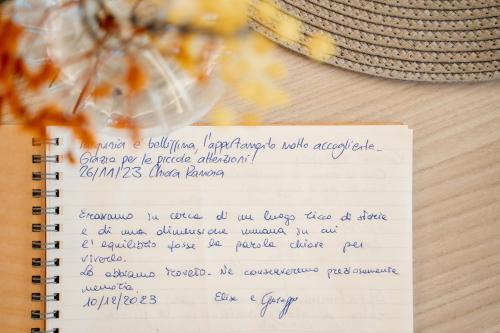 è bellissima, l'appartamento molto accogliente.
Grazie per le piccole attenzioni!
26/11/23 Chiara
Eravamo in cerca di un luogo ricco di storia
e di una dimensione umana in cui
l'equilibrio fosse la parola chiave per
viverlo.
Lo abbiamo trovato. Ne conserveremo preziosamente
memoria.
10/12/2023 Elisa e Giuseppe